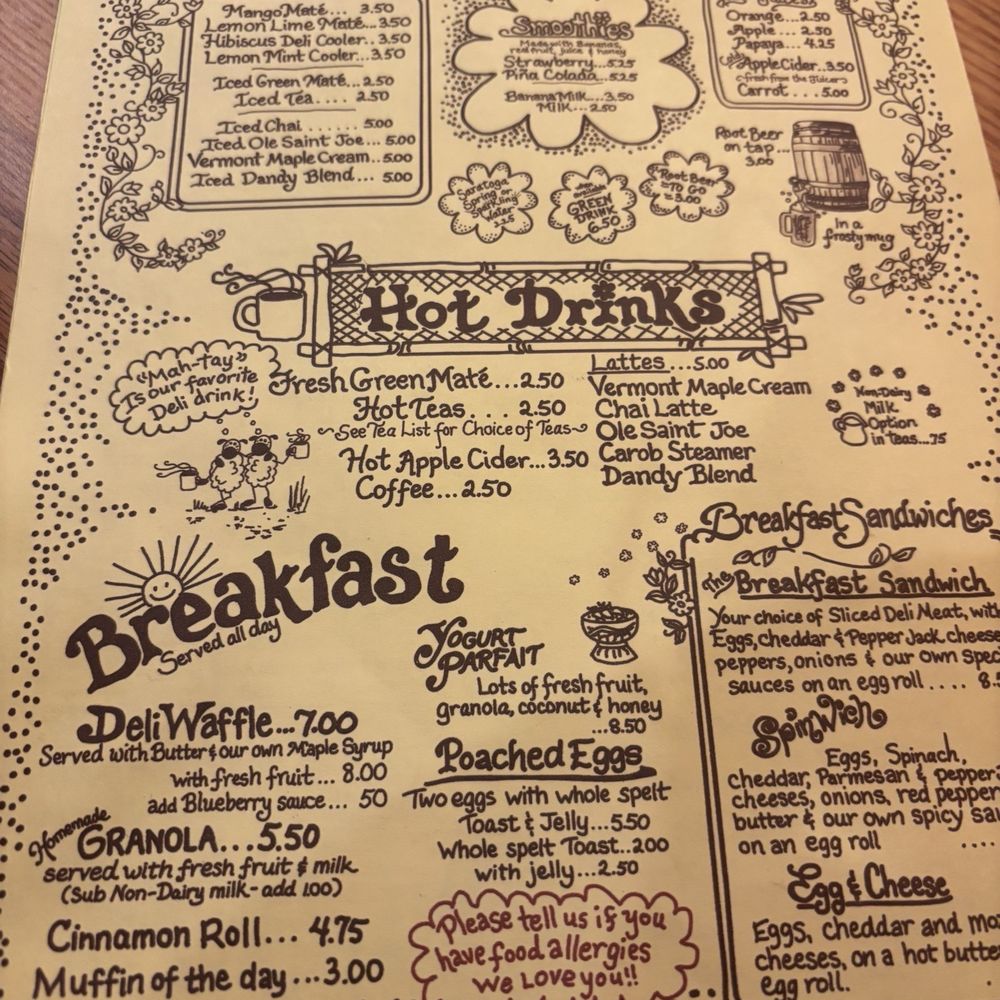 Mango Maté... 3.50
Lemon Lime Maté...3.50
Hibiscus Deli Cooler..3.50
Lemon Mint Cooler...3.50
Iced Green Maté...2.50
Iced Tea.... 2.50
Iced Chai ...... 5.00
Iced Ole Saint Joe...5.00
Vermont Maple Cream..5.00
Iced Dandy Blend... 5.00
Smoothies
Made with Bananas,
real fruit, juice & honey
Strawberry...5.25
Piña Colada...5.25
Banana Milk...3.50
Milk...2.50
Orange...2.50
Apple... 2.50
Papaya... 4.25
Apple Cider..3.50
fresh from the Juicer
Carrot... 5.00
Root Beer
on tap...
3.00
In a
frosty mug
Saratoga
Spring or
Sparkling
Water
when available
GREEN
DRINK
6.50
Root Beer
TO GO
3.00
Hot Drinks
"Mah-tay"
Is our favorite
Deli drink!
Fresh Green Maté...2.50
Hot Teas... 2.50
~See Tea List for Choice of Teas~
Hot Apple Cider...3.50
Coffee...2.50
Lattes...5.00
Vermont Maple Cream
Chai Latte
Ole Saint Joe
Carob Steamer
Dandy Blend
Non-Dairy
Milk
Option
in teas...75
Breakfast
Served all day
Deli Waffle...7.00
Served with Butter & our own Maple Syrup
with fresh fruit... 8.00
add Blueberry sauce... 50
Homemade
GRANOLA...5.50
served with fresh fruit & milk
(Sub Non-Dairy milk-add 1.00)
Cinnamon Roll... 4.75
Muffin of the day...3.00
YOGURT
PARFAIT
Lots of fresh fruit,
granola, coconut & honey
...8.50
Poached Eggs
Two eggs with whole spelt
Toast & Jelly...5.50
Whole spelt Toast..2.00
with jelly...2.50
Please tell us if you
have food allergies
We LOVE you!!
Breakfast Sandwiches
The Breakfast Sandwich
Your choice of Sliced Deli Meat, with
Eggs, cheddar & Pepper Jack cheese
peppers, onions & our own
sauces on an egg roll.... 8.
Spinwich
Eggs, Spinach,
cheddar, Parmesan & pepper
cheeses, onions, red pepper
butter & our own spicy
on an egg roll ....
Egg & Cheese
Eggs, cheddar and
cheeses, on a hot
egg roll.